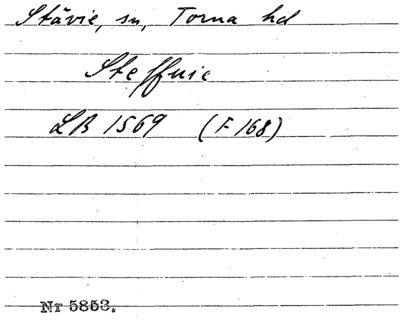 Stävie, sn, Torna hd
Steffuie
LB 1569 (F 168)
Nr 5853.